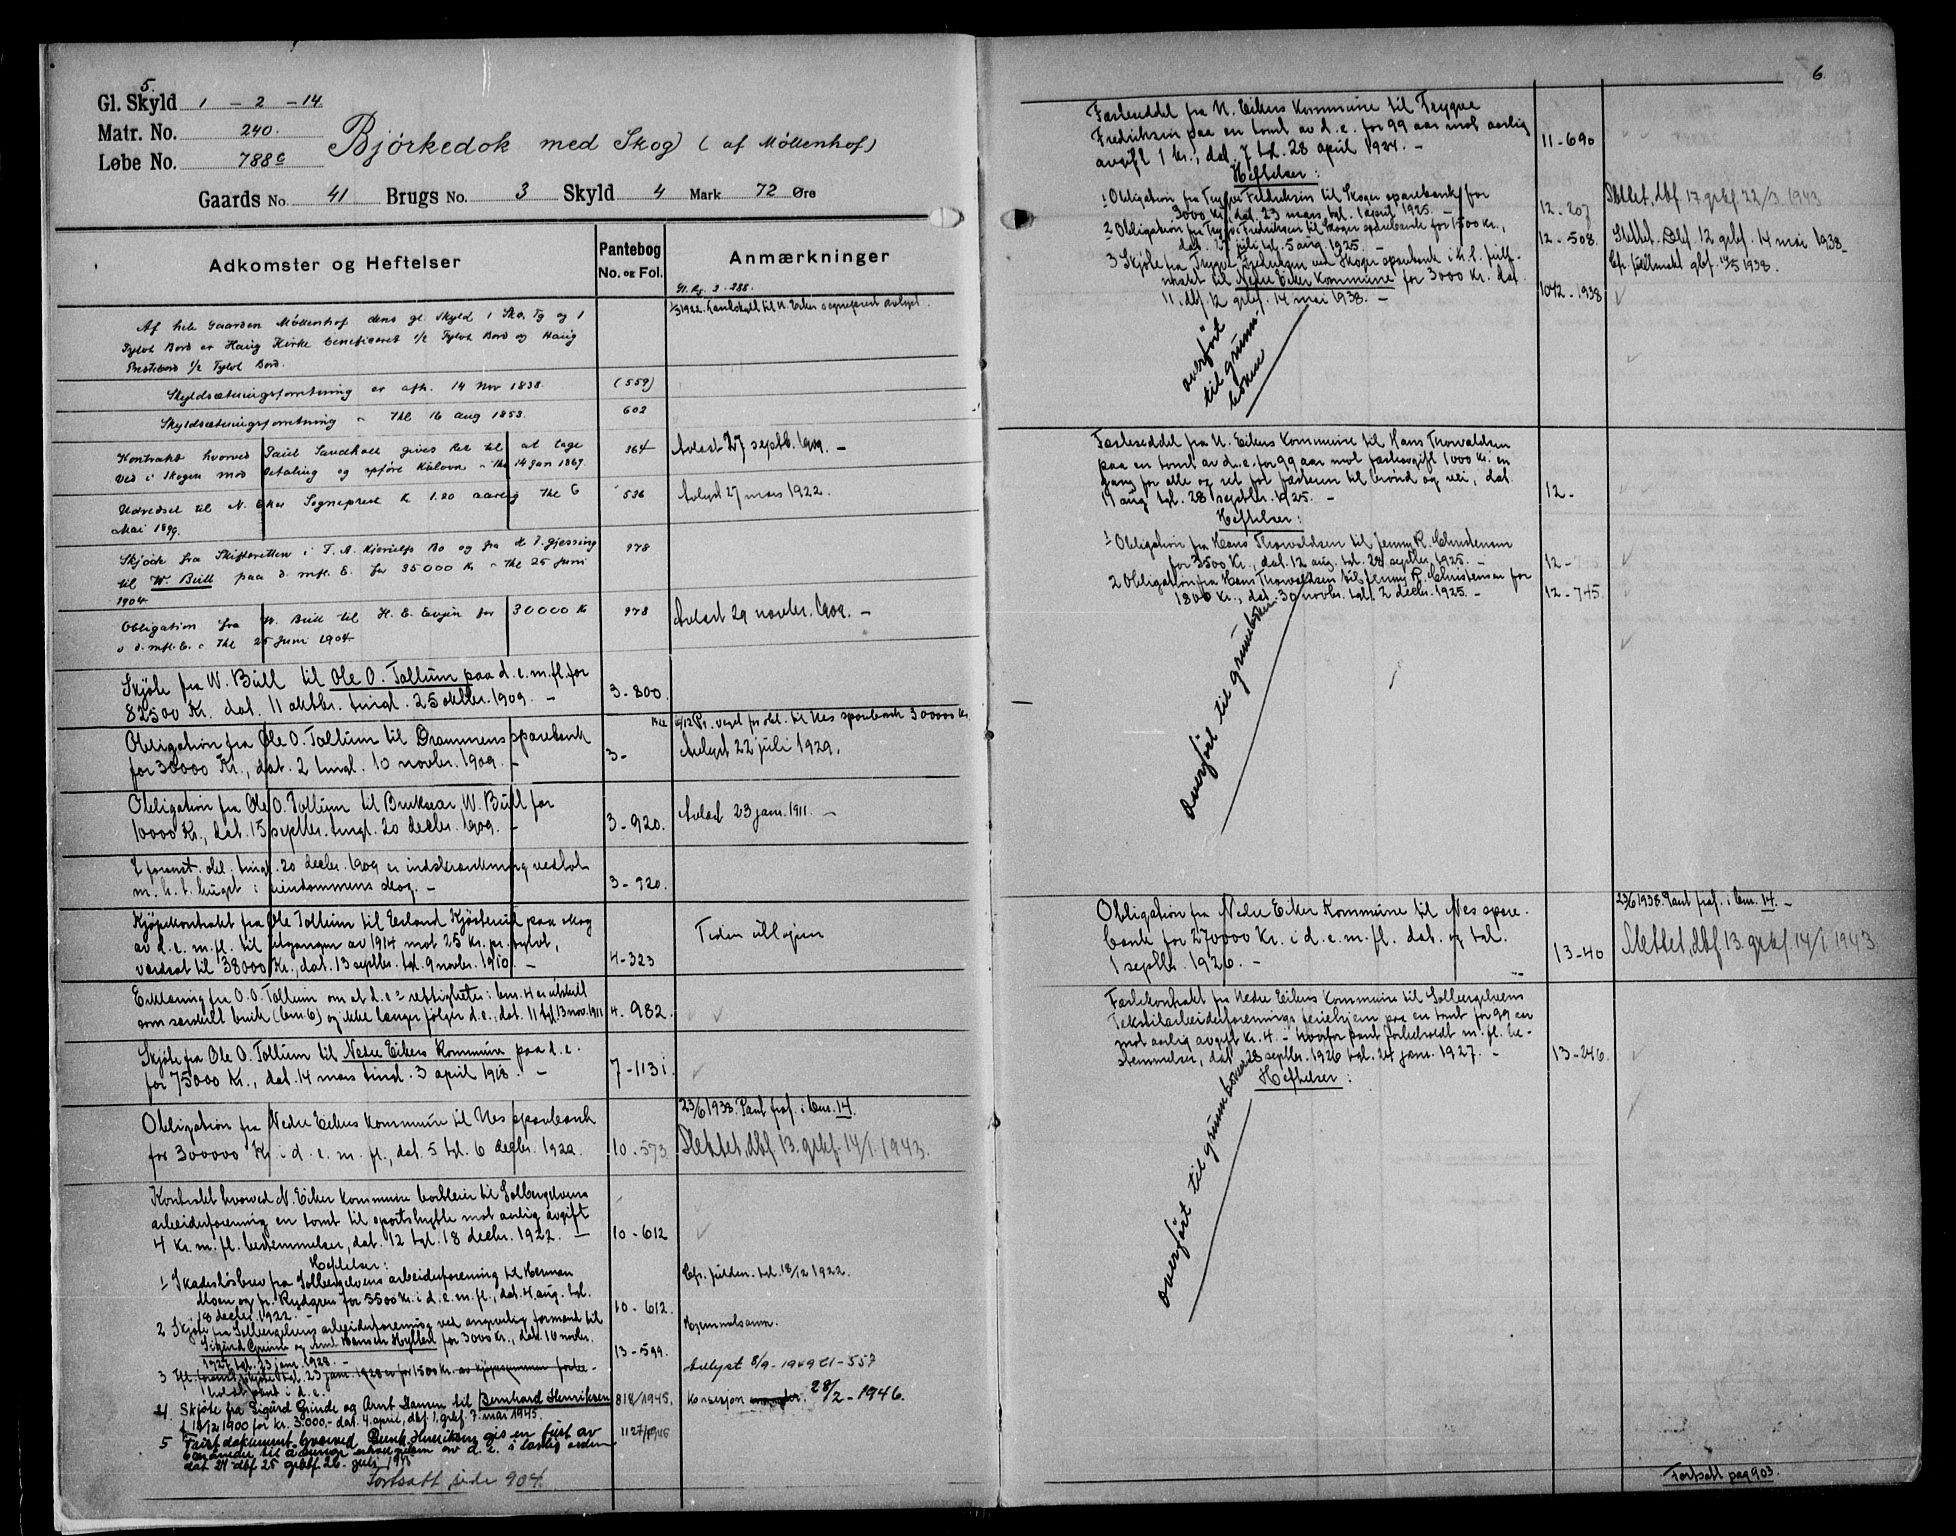 5.
Gl. Skyld 1 - 2 - 14.
Matr. No. 240.
Løbe No. 788c
Bjørkedok med Skog (af Möllenhof)
Gaards No. 41 Brugs No. 3 Skyld 4 Mark 72 Øre
Adkomster og Heftelser
Pantebog
No. og Fol.
Anmærkninger
Gl. Rg. 2. 288.
Af hele Gaarden Möllenhof dens gl. Skyld 1 Skp. Tg og 1
Tylvt Bord er Haug Kirke beneficeret 1/2 Tylvt Bord og Haug
Prestebord 1/2 Tylvt Bord.
Skyldsætningsforretning er afh. 14 Nov 1838. (559)
Skyldsætningsforretning " Thl 16 Aug 1853. 602
Kontrakt hvorved Paul Sandhoel gives Ret til at tage
Ved i Skogen mod Betaling og opføre Kølovn " Thl 14 Jan 1867. 364 Avlæst 27 septb. 1909. —
Udredsel til N. Eker Sogneprest Kr 1.20 aarlig Thl 6
Mai 1899. 536 Avlyst 27 mars 1922.
Skjøde fra Skifteretten i T. A. Kjerulfs Bo og fra d. T. Gjessing
til W. Bull paa d. mfl. E. for 35000 Kr " Thl 25 Juni
1904. 978
Obligation fra W. Bull til H. E. Evjen for 30000 Kr
i d. mfl. E. " Thl 25 Juni 1904 978 Avlæst 29 novbr. 1909. —
Skjøte fra W. Bull til Ole O. Tollum paa d. e. m. fl. for
82500 Kr. dat. 11 oktbr. tingl. 25 oktbr. 1909. — 3-800.
Obligation fra Ole O. Tollum til Drammens sparebank
for 30000 Kr., dat. 2 tingl. 10 novbr. 1909. — 3- Avlyst 22 juli 1929.
Obligation fra Ole O. Tollum til Brukseier W. Bull for
10000 Kr., dat. 15 septbr. tingl. 20 decbr. 1909. — 3-920. Avlæst 23 jan. 1911. —
I foranst. obl. tingl. 20 decbr. 1909 er indskrænkning vedtat
m. h. t. hugst i eiendommens skog. — 3-920.
Kjøpekontrakt fra Ole Tollum til Erland Kjøsterud paa skog
av d. e. m. fl. til utgangen av 1914 mot 25 kr. pr. tylvt,
værdsat til 38000 Kr., dat. 13 septbr. tgl. 9 novbr. 1910. — 4-323 Tiden utløpen
Erklæring fra O. O. Tollum om at d. e.s rettigheter i bnr. 4 er utskilt
som særskilt bruk (bnr. 6) og ikke længer følger d. e., dat. 11 tgl. 13 nov. 1911 4-982.
Skjøte fra Ole O. Tollum til Nedre Eikers Kommune paa d. e.
for 75000 Kr., dat. 14 mars tingl. 3 april 1918. — 7-113
Obligation fra Nedre Eikers Kommune til Nes sparebank
for 300000 Kr. i d. e. m. fl., dat. 5 tgl. 6 decbr. 1922. 10-573
23/6 1938. Pant praf. i bnr. 14.
Slettet, dbf. 13. grbf. 14/1. 1943.
Kontrakt hvorved N. Eiker Kommune bortleier til Solbergelvens
arbeiderforening en tomt til sportshytte mot aarlig avgift
4 Kr. m. fl. bestemmelser, dat. 12 tgl. 18 decbr. 1922. — 10-612
Heftelser:
1 Skadesløsbrev fra Solbergelvens arbeiderforening til Herman
Moen og fr. Rydgren for 3500 Kr. i d. e. m. fl., dat. 4 aug. tgl.
18 decbr. 1922. — 10-612.
2 Skjøte fra Solbergelvens arbeiderforening ved angivelig formand til
Sigurd Grinde og Arnt Hansen Hylleid for 3000 Kr., dat. 16 novbr.
1927 tgl. 23 jan. 1928. — 13-599. Hjemmelsanm.
3 Ifl. foranst. skjøte tgl. 23 jan. 1928 er for 1500 Kr. av kjøpesummen forbe-
holdt pant i d. e. Avlyst 8/9-1949
4. Skjøte fra Sigurd Grinde og Arnt Hansen til Bernhard Henriksen
f. 18/12 1900 for kr. 3.000,- dat. 4. april, dbf. 1, grbf. 7. mai 1945. 818/1945. Konsesjon 28/2-1946.
5 1127/1945
dat 24 dbf 25 grbf 26. juli 1945
Fortsatt side 904.
6
Festeseddel fra N. Eikers Kommune til Trygve
Fredriksen paa en tomt av d. e. for 99 aar mot aarlig
avgift 1 kr., dat. 7 tgl. 28 april 1924. — 11-690
Heftelser:
1 Obligation fra Trygve Fredriksen til Skoger sparebank for
3000 Kr., dat. 23 mars, tgl. 1 april 1925. — 12-207 Slettet, dbf. 17 grbf. 22/3. 1943
2 Obligation fra Trygve Fredriksen til Skoger sparebank for 1500 Kr.,
dat. 27 juli tgl. 5 aug. 1925. — 12-508. Slettet. Dbf. 12 grbf. 14 mai 1938.
3 Skjøte fra Trygve Fredriksen ved Skoger sparebank i h. t. full-
makt til Nedre Eiker Kommune for 3000 kr. dat.
11. dbf. 12 grbf. 14 mai 1938. — 1042-1938
overført
til grunn-
boken
Festeseddel fra N. Eikers Kommune til Hans Thorvaldsen
paa en tomt av d. e. for 99 aar mot festeavgift 1000 Kr. en
gang for alle og ret for festeren til brønd og vei, dat.
17 aug. tgl. 28 septbr. 1925. — 12-
Heftelser:
1 Obligation fra Hans Thorvaldsen til Jenny R. Christensen
for 3500 Kr., dat. 12 aug. tgl. 28 septbr. 1925. — 12-
2 Obligation fra Hans Thorvaldsen til Jenny R. Christensen for
1800 Kr., dat. 30 novbr. tgl. 2 decbr. 1925. — 12-745.
overført til grunnboken
Obligation fra Nedre Eiker Kommune til Nes spare-
bank for 270000 Kr. i d. e. m. fl. dat. og tgl.
1 septbr. 1926. — 13-40
23/6 1938. Pant praf. i bnr. 14. —
Slettet, dbf. 13. grbf. 14/1. 1943.
Festekontrakt fra Nedre Eikers Kommune til Solbergelvens
Tekstilarbeiderforenings feriehjem paa en tomt for 99 aar
mot aarlig avgift kr. 4. – hvorfor pant forbeholdt m. fl. be-
stemmelser, dat. 28 septbr. 1926 tgl. 24 jan. 1927. — 13-246.
Heftelser:
overført til grunnboken
Fortsatt pag 903.